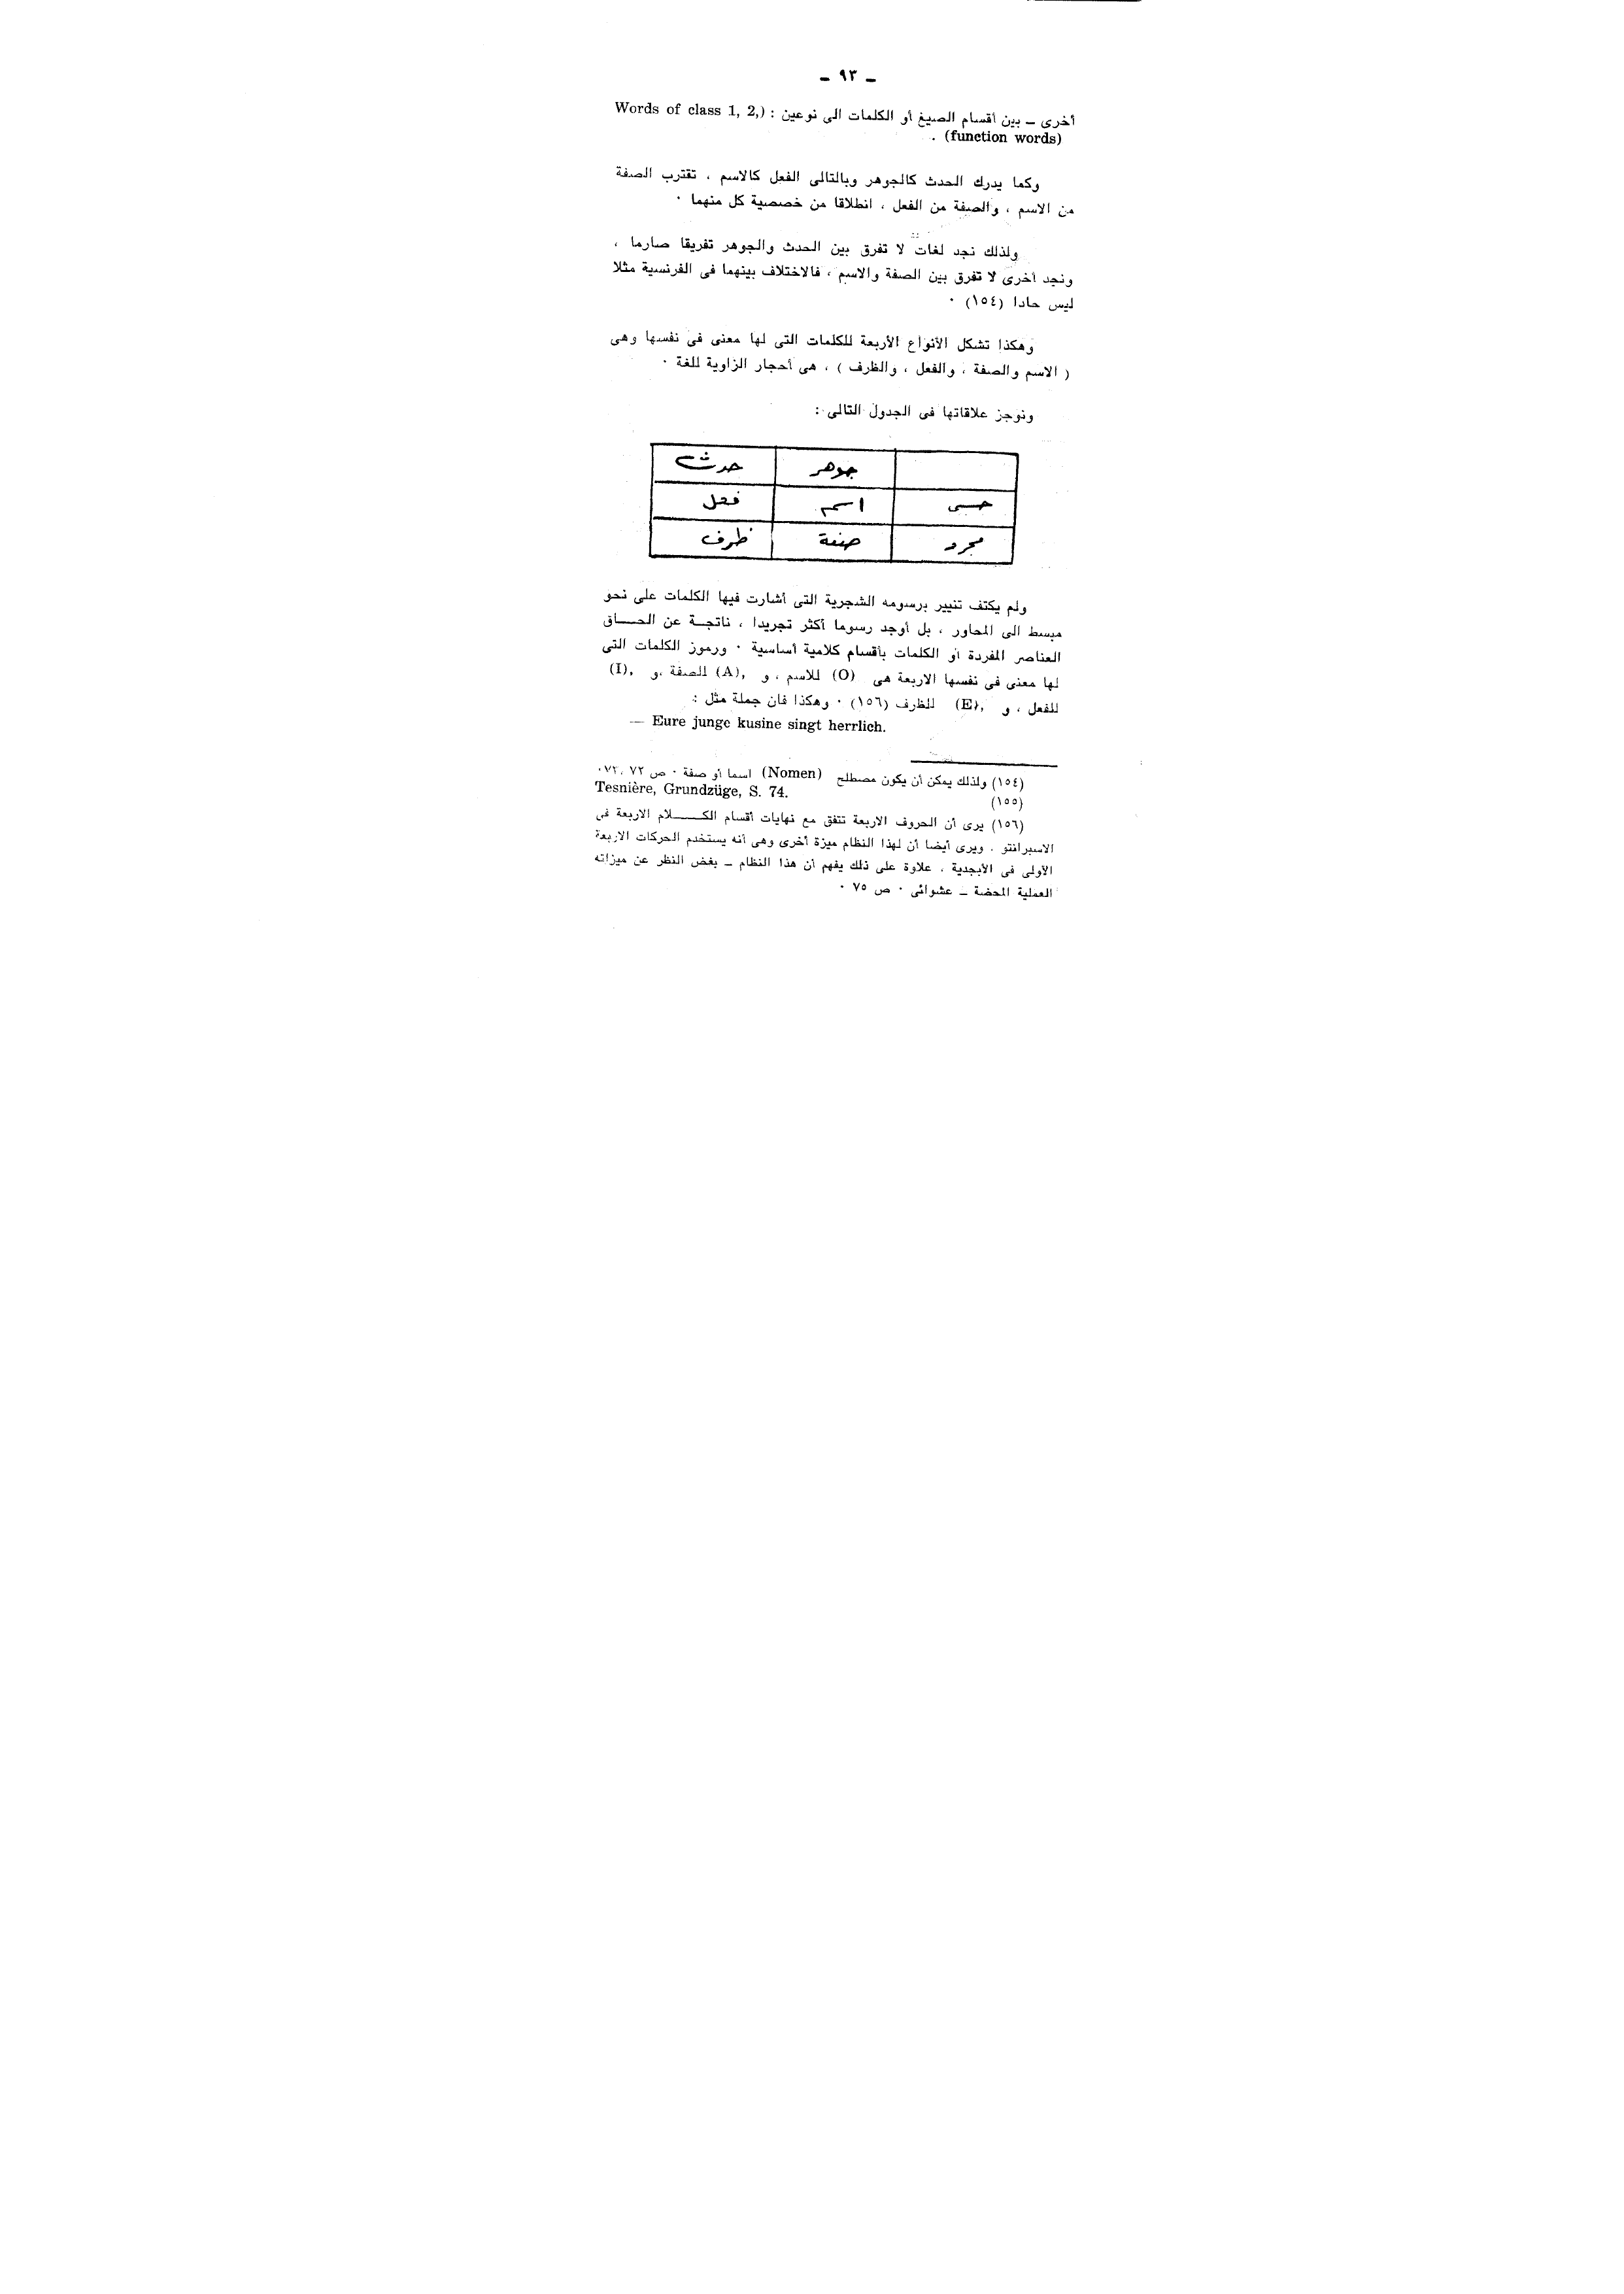 ـ ٩٣ ـ
أخرى ـ بين أقسام الصيغ أو الكلمات الى نوعين : (Words of class 1, 2,
(function words) .
وكما يدرك الحدث كالجوهر وبالتالى الفعل كالاسم ، تقترب الصفة
من الاسم ، والصفة من الفعل ، انطلاقا من خصصية كل منهما ٠
ولذلك نجد لغات لا تفرق بين الحدث والجوهر تفريقا صارما ،
ونجد أخرى لا تفرق بين الصفة والاسم ، فالاختلاف بينهما فى الفرنسية مثلا
ليس حادا (١٥٤) ٠
وهكذا تشكل الأنواع الأربعة للكلمات التى لها معنى فى نفسها وهى
( الاسم والصفة ، والفعل ، والظرف ) ، هى أحجار الزاوية للغة ٠
ونوجز علاقاتها فى الجدول التالى :
جوهر حدث
حسى اسم فعل
مجرد صفة ظرف
ولم يكتف تنيير برسومه الشجرية التى أشارت فيها الكلمات على نحو
مبسط الى المحاور ، بل أوجد رسوما أكثر تجريدا ، ناتجــة عن الحــــاق
العناصر المفردة أو الكلمات بأقسام كلامية أساسية ٠ ورموز الكلمات التى
لها معنى فى نفسها الاربعة هى (O) للاسم ، و (A), للصفة ،و (I),
للفعل ، و (E), للظرف (١٥٦) ٠ وهكذا فان جملة مثل :
— Eure junge kusine singt herrlich.
(١٥٤) ولذلك يمكن أن يكون مصطلح (Nomen) اسما أو صفة ٠ ص ٧٢ ،٧٣٠
(١٥٥) Tesnière, Grundzüge, S. 74.
(١٥٦) يرى أن الحروف الاربعة تتفق مع نهايات أقسام الكــــــلام الاربعة فى
الاسبرانتو ، ويرى أيضا أن لهذا النظام ميزة أخرى وهى أنه يستخدم الحركات الاربعة
الأولى فى الأبجدية ، علاوة على ذلك يفهم أن هذا النظام ـ بغض النظر عن ميزاته
العملية المحضة ـ عشوائى ٠ ص ٧٥ ٠